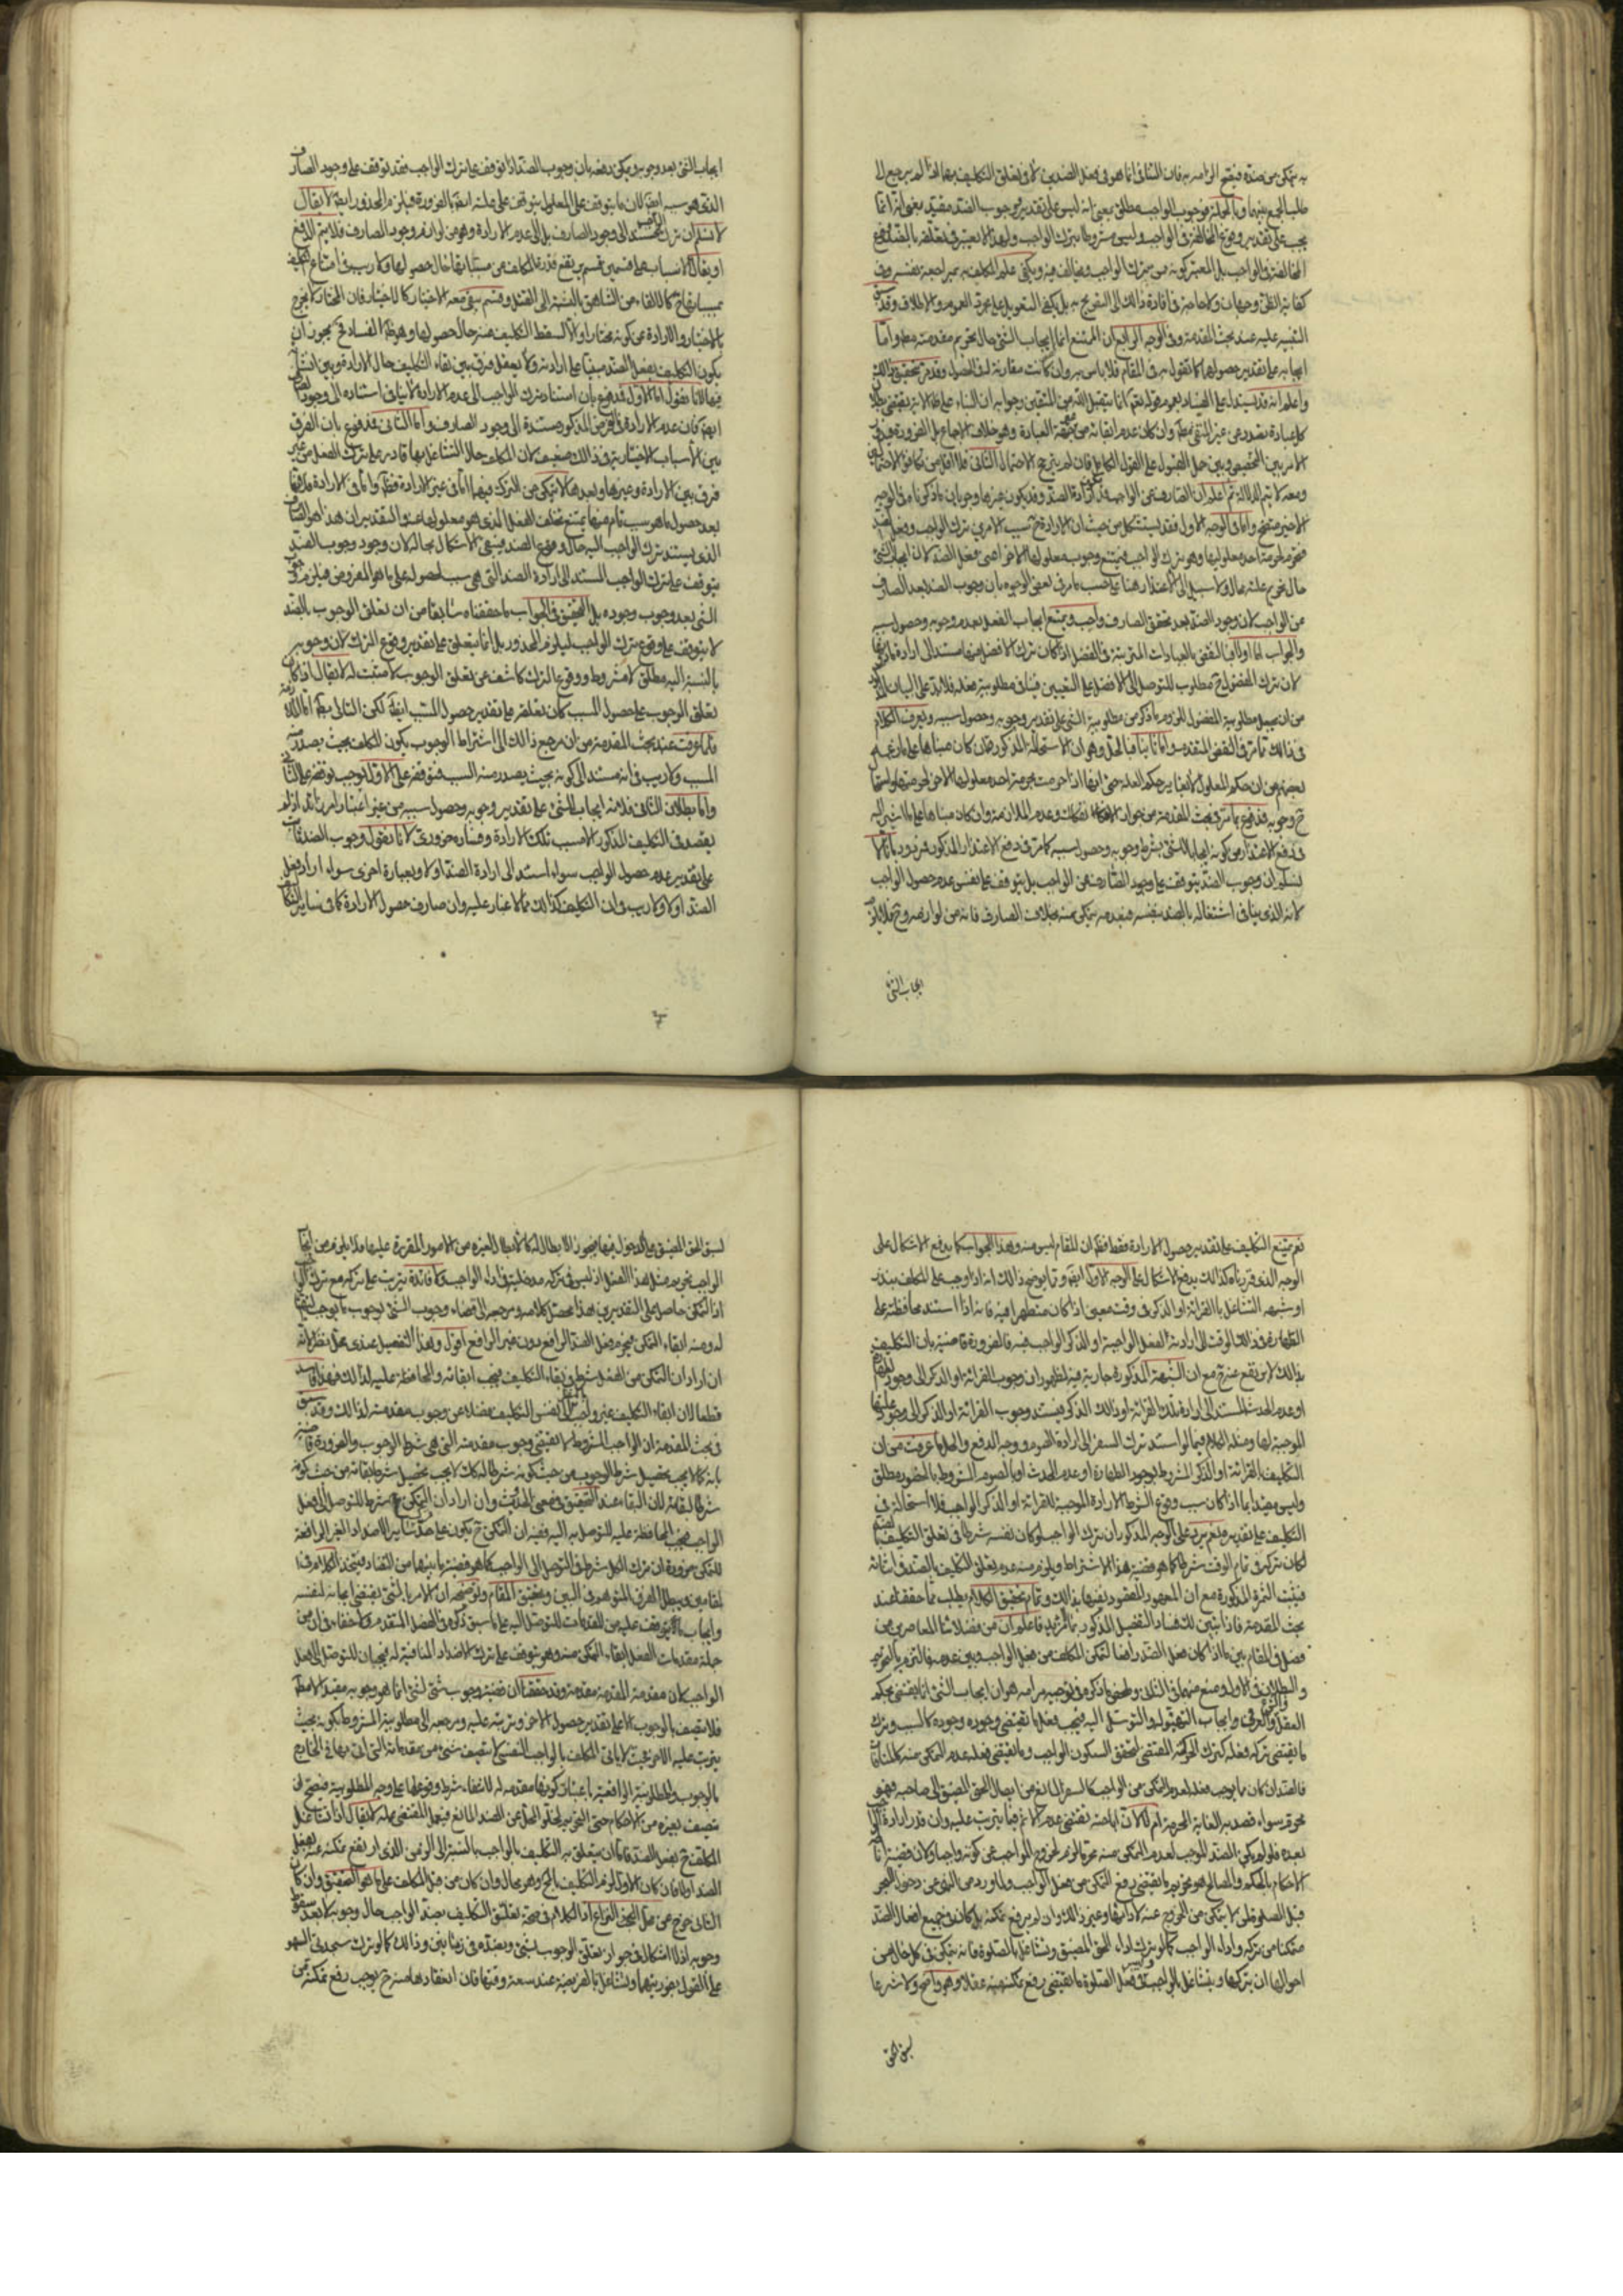 به يتمكن من ضده فيقبح الزامه به فان التنافى انما هو فى فعل الضدين لا فى تعلق التكليف بهما اذا لم يرجع الى
طلب الجمع بينهما وبالجملة فوجوب الواجب مطلق بمعنى انه ليس على تقدير ووجوب الضد مقيد بمعنى انه انما
يجب على تقدير وقوع المخالفة فى الواجب وليس مشروطا بترك الواجب
المخالفة فى الواجب بل المعتبر كونه ممن يترك الواجب ويخالف فيه ويكفى علم المكلف به بمراجعة نفسه وفى
كفاية الظن وجهان ولا حاجة فى افادة ذلك الى التصريح به بل يكفى التعويل على العموم والاطلاق وقد
التنبيه عليه عند بحث المقدمة وفى الوجه الرابع ان الممتنع انما ايجاب الشئ حال تحريم مقدمته مطلقا واما
ايجابه على تقدير حصولها كما نقول به فى المقام فلا باس به وان كانت مقارنة له فى الحصول وقد مر تحقيق ذلك
واعلم انه قد يستدل على الفساد بعموم قوله تعالى انما يتقبل الله من المتقين وجوابه ان البناء على ظاهره يقتضى بطلان
كل عبادة تصدر من غير المتقى مطلقا وان كان عدم اتقائه من جهة العبادة وهو خلاف الاجماع بل الضرورة فيدور
الامر بين التخصيص وبين حمل القبول على القبول الكامل فان لم يترجح الاحتمال الثانى فلا اقل من تكافؤ الاحتمالين
ومعه لا يتم الدلالة ثم اعلم ان الصارف عن الواجب قد يكون ارادة الضد وقد يكون غيرها وجوابى ما ذكرنا من الوجه
الاخير متجه واما فى الوجه الاول فقد يستشكل من حيث ان الارادة ح سبب لامرين ترك الواجب وفعل الضد
فتحرم لحرمة احد معلوليها وهو ترك الواجب فيمتنع وجوب معلولها الاخر اعنى فعل الضد لان ايجاب الشئ
حال تحريم علته محال ولا سبيل الى الاعتذار هنا على حسب ما مر فى بعض الوجوه بان وجوب الضد بعد الصارف
عن الواجب لان وجود الضد بعد تحقق الصارف واجب ويمتنع ايجاب الفعل بعد وجوبه وحصول سببه
والجواب اما اولا فبالنقض بالعبادات المترتبة فى الفضل اذا كان ترك الافضل منها مستندا الى ارادة
لان ترك المفضول ح مطلوب للتوصل الى الافضل على التعيين فينافى مطلوبية فعله فلا بد على البيان
من ان يجعل مطلوبية المفضول ما ذكر من مطلوبية الشئ على تقدير وجوبه وحصول سببه ويعرف الكلام
فى ذلك مما مر فى النقض المتقدم واما ثانيا فبالحل وهو ان الاستحالة المذكورة ان كان مبناها على ما زعمه
بعضهم من ان حكم المعلول لا يغاير حكم العلة حتى انها اذا حرمت بحرمة احد معلوليها حرم الاخر لحرمتها واستحال
ح وجوبه فمدفوع بما مر فى بحث المقدمة من جواز الانفكاك وعدم الملازمة وان كان مبناها على ما اشير اليه
فى دفع الاعتذار من كونه ايجابا للشئ بشرط وجوبه وحصول سببه كما مر فى دفع الاعتذار المذكور فمردود بانا لا
نسلم ان وجوب الضد يتوقف على وجود الصارف عن الواجب بل يتوقف على نفس عدم حصول الواجب
لانه الذى ينافى اشتغاله بالضد بنفسه فبعدمه يتمكن منه بخلاف الصارف فانه من لوازمه وح فلا يلزم
ايجاب الشئ
ايجاب الشئ بعد وجوبه ويمكن دفعه بان وجوب الضد اذا توقف على ترك الواجب فقد توقف على وجود الصارف
الذى هو سببه ايضا لان ما يتوقف على المعلول يتوقف على علته ايضا بالضرورة فيلزم المحذور ايضا لا يقال
لا نسلم ان ترك الواجب مستند الى وجود الصارف بل الى عدم الارادة وهو من لوازم وجود الصارف فلا يتم الدفع
او يقال الاسباب على قسمين قسم يرتفع قدرة المكلف عن مسبباتها حال حصولها ولا ريب فى امتناع التكليف
بمسبباتها ح كالالقاء من الشاهق بالنسبة الى القتل وقسم يبقى معه الاختيار كالاختيار فان المختار لا يخرج
بالاختيار والارادة عن كونه مختارا والا لسقط التكليف عنه حال حصولها وهو ظاهر الفساد فح يجوز ان
يكون التكليف بفعل الضد مبنيا على ارادته ولا يعقل فرق بين بقاء التكليف حال الارادة وبين انشائه
فيها لانا نقول اما الاول فمدفوع بان استناد ترك الواجب الى عدم الارادة لا ينافى استناده الى وجود الصارف
ايضا لان عدم الارادة فى الفرض المذكور مستندة الى وجود الصارف واما الثانى فمدفوع بان الفرق
بين الاسباب الاختيارية فى ذلك ضعيف لان المكلف حال التشاغل بها قادر على ترك الفعل من غير
فرق بين الارادة وغيرها وبعدها لا يتمكن من الترك فيهما اما فى غير الارادة فظاهر واما فى الارادة فلانها
بعد حصول ما هو سبب تام منها يمتنع تخلف الفعل الذى هو معلولها عنه والتقدير ان هذا هو الصارف
الذى يستند ترك الواجب اليه حال وقوع الضد فيبقى الاشكال بحاله لان وجود وجوب الضد
يتوقف على ترك الواجب المستند الى ارادة الضد التى هى سبب لحصوله على ما هو المفروض فيلزم وجوب
الشئ بعد وجوب وجوده بل التحقيق فى الجواب ما حققناه سابقا من ان تعلق الوجوب بالضد
لا يتوقف على وقوع ترك الواجب ليلزم المحذور بل انما يتعلق على تقدير وقوع الترك لان وجوبه
بالنسبة اليه مطلق لا مشروط ووقوع الترك كاشف عن تعلق الوجوب لا مثبت له لا يقال اذا كان
تعلق الوجوب على حصول السبب كان تعلقه على تقدير حصول المسبب ايضا لكن التالى بط اما الملازمة
فلما عرفت عند بحث المقدمة من ان مرجع ذلك الى اشتراط الوجوب بكون المكلف بحيث يصدر منه
المسبب ولا ريب فى انه مستند الى كونه بحيث يصدر منه السبب فتوقفه على الاول يوجب توقفه على الثانى
واما بطلان الثانى فلانه ايجاب للشئ على تقدير وجوبه وحصول سببه من غير اعتبار امر زائد اذ لم
يقصد فى التكليف المذكور الا سبب تلك الارادة وفساده ضرورى لانا نقول وجوب الضد ثابت
على تقدير عدم حصول الواجب سواء استند الى ارادة الضد او لا وبعبارة اخرى سواء اراد فعل
الضد او لا ولا ريب فى ان التكليف كذلك مما لا غبار عليه وان صارف حصول الارادة كما فى ساير التكاليف
نعم يمتنع التكليف على تقدير حصول الارادة فقط فظهر ان المقام ليس منه وهذا الجواب كما يدفع الاشكال على
الوجه الذى قررناه كذلك يدفع الاشكال على الوجه الاول ايضا ومما يوضح ذلك انه اذا وجب على المكلف بنذر
او شبهه التشاغل بالقرائة او الذكر فى وقت معين اذا كان متطهرا فيه فانه اذا استند محافظته على
الطهارة فى ذلك الوقت الى ارادته الفعل الواجبة او الذكر الواجب فيه فالضرورة قاضية بان التكليف
بذلك لا يرتفع عنه ح مع ان الشبهة المذكورة جارية فيه لظهور ان وجوب القرائة او الذكر الى وجود الطهارة
او عدم الحدث المستند الى ارادة تلك القرائة او ذلك الذكر فيستند وجوب القرائة او الذكر الى وجود علتها
الموجبة لها ومثله الكلام فيما لو استند ترك السفر الى ارادة الصوم ووجه الدفع والحل ما عرفت من ان
التكليف بالقرائة او الذكر المشروط بوجود الطهارة او عدم الحدث او بالصوم المشروط بالحضور مطلق
وليس مقيدا بما اذا كان سبب وقوع الشرط الارادة الموجبة للقرائة او الذكر الواجب فلا استحالة فى
التكليف على تقديره نعم يرد على الوجه المذكور ان ترك الواجب لو كان نفسه شرطا فى تعلق التكليف بالضد
لكان تركه فى تمام الوقت شرطا كما هو قضية هذا الاشتراط ويلزم منه عدم تعلق التكليف بالضد فى اثنائه
فيثبت الثمرة المذكورة مع ان المعهود المقصود نفيها بذلك وتمام تحقيق الكلام يطلب مما حققنا عند
بحث المقدمة فاذا تبين لك فساد التفصيل المذكور بما لا مزيد فاعلم ان من فضلائنا المعاصرين من
فصل فى المقام بين ما اذا كان فعل الضد رافعا لتمكن المكلف من فعل الواجب وبين عدمه فالتزم بالتحريم
والبطلان فى الاول ومنع منهما فى الثانى وملخص ما ذكره فى توجيه مرامه هو ان ايجاب الشئ انما يقتضى بحكم
العقل والعرف ايجاب التهيؤ له والتوسل اليه فيجب فعل ما يقتضى وجوده وجوده كالسبب وترك
ما يقتضى تركه فعله كترك الحركة المقتضى لتحقق السكون الواجب وما يقتضى فعله عدم التمكن منه كالمنافيات
فالضد ان كان مما يوجب فعله لعدم التمكن من الواجب كالسفر المانع من ايصال الحق المضيق الى صاحبه فهو
محرم سواء قصد به الغاية المحرمة ام لا لان اباحته تقتضى عدم الاثم فيما يترتب عليه وان قدر ارادة الواجب
بعده فلو لم يكن الضد الموجب لعدم التمكن منه محرما لزم خروج الواجب عن كونه واجبا ولان قضية اناطة
الاحكام بالحكم والمصالح هو تحريم ما يقتضى رفع التمكن من فعل الواجب ولما ورد من النهى عن دخول البحر
قبل الصلوة لمن لا يتمكن من الخروج عنه لادائها وغير ذلك وان لم يرفع تمكنه بل كان فى جميع افعال الضد
متمكنا من تركه واداء الواجب كما لو ترك اداء الحق المضيق وتشاغل بالصلوة فانه يتمكن فى كل حال من
احوالها ان يتركها ويتشاغل بالواجب وليس فى فعل الصلوة ما يقتضى رفع تمكنه منه عقلا وهو واضح ولا شرعا
لسبق الحق
لسبق الحق المضيق على الدخول فيها فيجوز الابطال له كالابطال لغيره من الامور المقررة عليها فلا يلزم من ايجاب
الواجب تحريم مثل هذا الفعل اذ ليس فى تركه مدخلية فى اداء الواجب ولا فائدة يترتب على تركه مع ترك الواجب
اذ التمكن حاصل على التقديرين هذا محصل كلامه ومرجعه الى اقتضاء وجوب الشئ لوجوب ما يوجب التمكن
له ومنه ابقاء التمكن فيحرم فعل الضد الرافع دون غير الرافع اقول وهذا التفصيل عندى محل نظر لانه
ان اراد ان التمكن من الفعل شرط فى بقاء التكليف فيجب ابقائه والمحافظة عليه لذلك فهذا فاسد
قطعا لان ابقاء التكليف غير واجب بنفس التكليف فضلا عن وجوب مقدمته لذلك وقد سبق
فى بحث المقدمة ان الواجب المشروط لا يقتضى وجوب مقدمته التى هى شرط الوجوب والضرورة قاضية
بانه كما لا يجب تحصيل شرط الوجوب من حيث كونه شرطا له كك لا يجب تحصيل شرط بقائه من حيث كونه
شرطا لبقائه لان البقاء عند التحقيق فى معنى الحدوث وان اراد ان التمكن شرط للتوصل الى فعل
الواجب فيجب المحافظة عليه للتوصل به اليه ففيه ان التمكن ح يكون على حد ساير الاضداد الغير الرافعة
للتمكن ضرورة ان ترك الكل شرط فى التوصل الى الواجب كما هو قضية ما بينهما من التضاد فيتحد الكلام فى
المقامين ويبطل الفرق المتوهم فى البين وتحقيق المقام وتوضيحه ان الامر بالشئ يقتضى ايجابه لنفسه
وايجاب ما يتوقف عليه من المقدمات للتوصل اليه على ما سبق ذكره فى الفصل المتقدم ولا خفاء فى ان من
جملة مقدمات الفعل ابقاء التمكن منه وهو يتوقف على ترك الاضداد المنافية له فيجبان للتوصل الى فعل
الواجب لان مقدمة المقدمة مقدمة وقد حققنا ان قضية وجوب شئ لشئ انما هو وجوبه مقيدا لا مطلقا
فلا يتصف بالوجوب الا على تقدير حصول الاخر وترتبه عليه ومرجعه الى مطلوبية المشروط بكونه بحيث
يترتب عليه الاخر فحيث لا ياتى المكلف بالواجب النفسى لا يتصف شئ من مقدماته التى اتى بها فى الخارج
بالوجوب والمطلوبية الواقعية باعتبار كونها مقدمة له لانتفاء شرط وقوعها على وجه المطلوبية فيصح ان
يتصف بغيره من الاحكام حتى التحريم لخلو المحل عن الضد المانع فيعمل المقتضى عمله لا يقال اذا تشاغل
المكلف ح بفعل الضد فاما ان يتعلق به التكليف بالواجب بالنسبة الى الزمن الذى ارتفع تمكنه عنه بفعل
الضد او لا فان كان الاول لزم التكليف بالمح وهو محال وان كان من قبل المكلف على ما هو التحقيق وان كان
الثانى خرج عن محل البحث والنزاع اذ الكلام فى صحة تعلق التكليف بضد الواجب حال وجوبه لا بعد سقوط
وجوبه اذ لا اشكال فى جواز تعلق الوجوب بشئ وبضده فى زمانين وذلك كما لو ترك سجدتى السهو
على القول بفوريتهما وتشاغل بالفريضة عند سعة وقتها فان انعقادها منه ح يوجب رفع تمكنه من